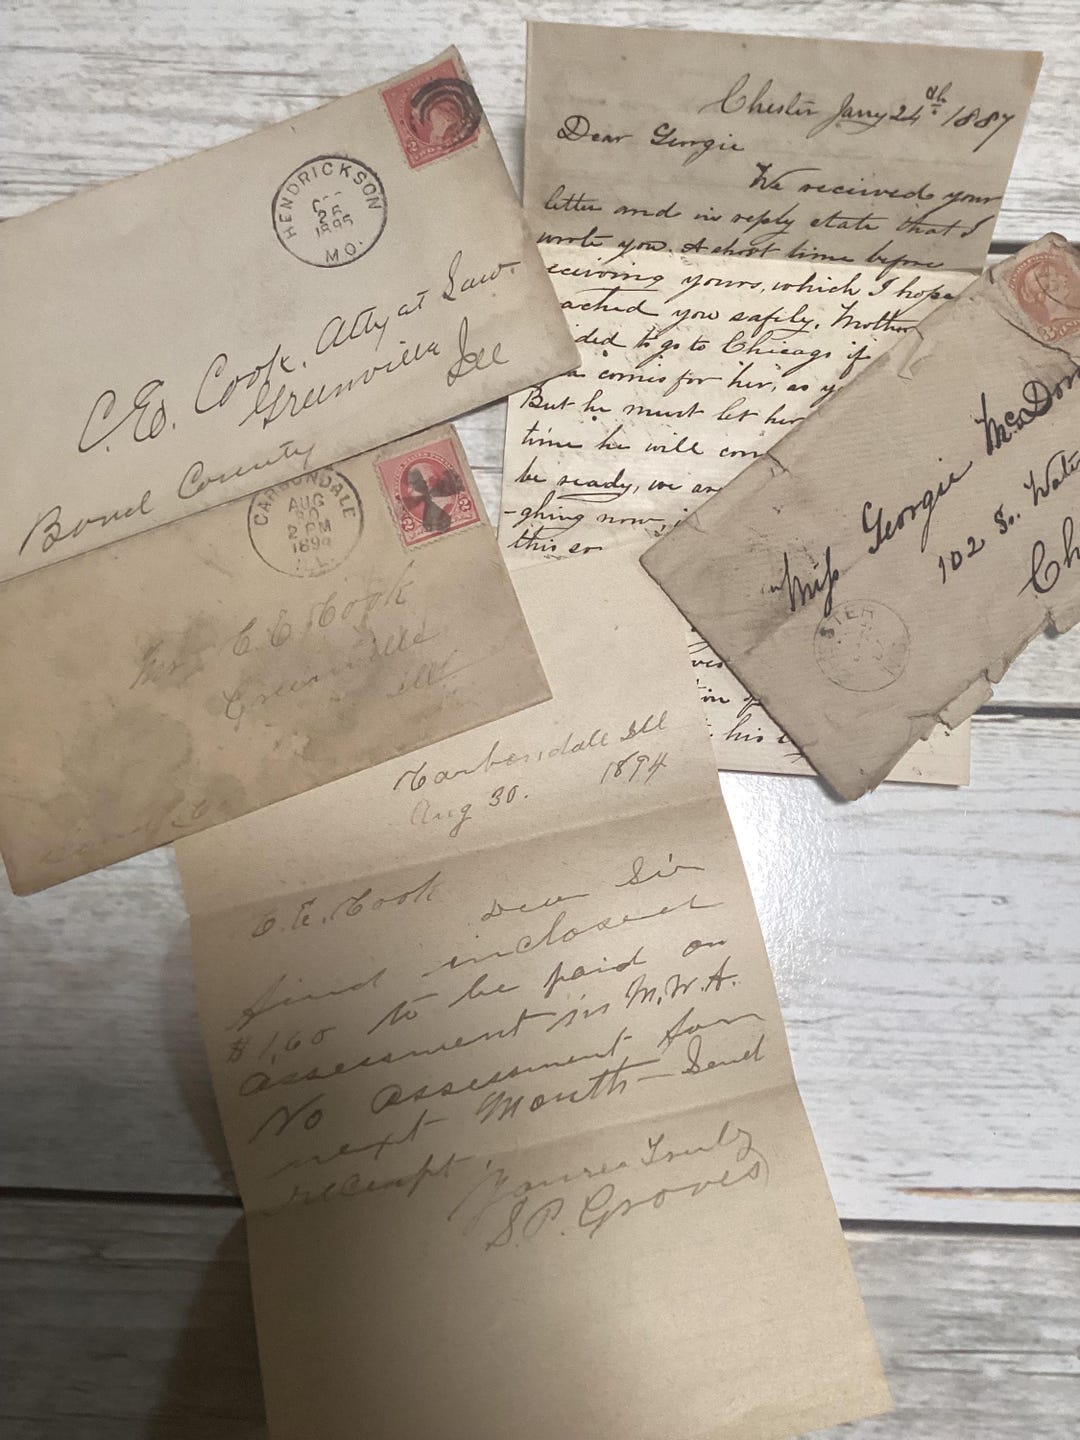 HENDRICKSON
1895
MO.
C. E. Cook. Atty at Law.
Greenville
Ill
Bond County
CARBONDALE
AUG
30
2 PM
1894
ILL.
Mr C. E. Cook
Greenville
Ill
Chester Jany 24th 1887
Dear Georgie
We received your
letter and in reply state that I
wrote you. A short time before
eceiving yours, which I hope
ached you safely. Mother
ided to go to Chicago if
comes for her, as y
But he must let her
time he will com
be ready, we are
-ghing now,
this
his
Miss Georgie McDon
102 So. Wate
Ch
STER
Carbondale Ill
Aug 30. 1894
C. E. Cook
Dear Sir
find inclosed
$1,60 to be paid on
assessment in M.W.A.
No assessment for
next Month – Send
receipt.
Yours Truly
S. P. Groves